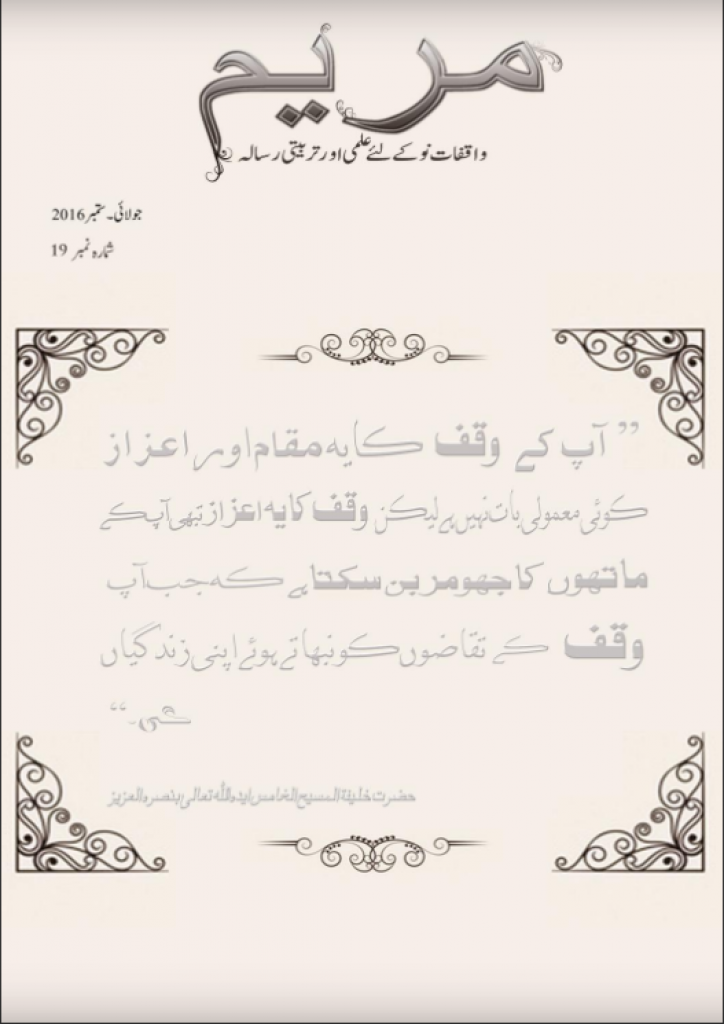 مریم
واقفات نو کے لئے علمی اور تربیتی رسالہ
جولائی۔ ستمبر 2016
شمارہ نمبر 19
” آپ کے وقف کا یہ مقام اور اعزاز
کوئی معمولی بات نہیں ہے لیکن وقف کا یہ اعزاز تبھی آپ کے
ماتھوں کا جھومر بن سکتا ہے کہ جب آپ
وقف کے تقاضوں کو نبھاتے ہوئے اپنی زندگیاں
گی۔“
حضرت خلیفۃ المسیح الخامس ایدہ اللہ تعالیٰ بنصرہ العزیز